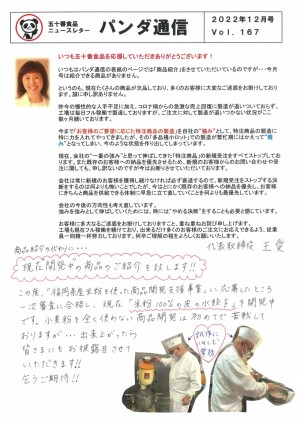 五十番食品
ニュースレター
パンダ通信
2022年12月号
Vol. 167
いつも五十番食品を応援していただきありがとうございます！
いつもはパンダ通信の表紙のページでは「商品紹介」をさせていているのですが・・・今月
号は紹介できる商品がありません。
というのも、現在たくさんの商品が欠品しており、多くのお客様に大変なご迷惑をお掛けしてお
ります。誠に申し訳ありません。
昨今の慢性的な人手不足に加え、コロナ禍からの急激な売上回復に製造が追いついておらず、
工場は毎日フル稼働で製造しておりますが、ご注文に対して製造が追いつかない状況がここ
数ヶ月続いております。
今まで「お客様のご要望に応じた特注商品の製造」を自社の“強み”として、特注商品の製造に
特に力を入れてやってきましたが、その「多品種小ロット」での製造が繁忙期にはかえって“弱
み”となってしまい、今のような状態を作り出してしまっています。
現在、自社の“一番の強み”と思って伸ばしてきた「特注商品」の新規受注をすべてストップしてお
ります。また既存のお客様への納品を優先させるため、新規のお客様からのお問い合わせや受
注に関しても、申し訳ないのですが今はお断りさせていただいております。
会社は常に新規のお客様を獲得し続けなければ必ず衰退するので、新規受注をストップする決
断をするのは何よりも怖いことでしたが、今はとにかく既存のお客様への納品を優先し、お客様に
きちんと商品を供給できる体制に早急に立て直していくことを何よりも最優先しています。
会社の今後の方向性も考え直しています。
強みを強みとして伸ばしていくためには、時には“やめる決断”をすることも必要と感じています。
お客様に多大なるご迷惑をお掛けしておりますこと、重ね重ねお詫び申し上げます。
工場も現在フル稼働を続けており、出来るだけ多くのお客様のご注文にお応えできるよう、従業
員一同精一杯努力しております。何卒ご理解の程をよろしくお願いいたします。
代表取締役 王愛
商品紹介の代わりに・・・
現在開発中の商品のご紹介を致します!!
この度、「福岡県産米粉を使った商品開発支援事業」に応募したところ
一次審査に合格し、現在「米粉100%の皮の水餃子」を開発中
です。小麦粉を全く使わない商品開発は初めてで苦戦して
おりますが・・・出来上がったら
皆さまにもお披露目させて
いただきます!!
乞うご期待!!
試作に
いそしむ